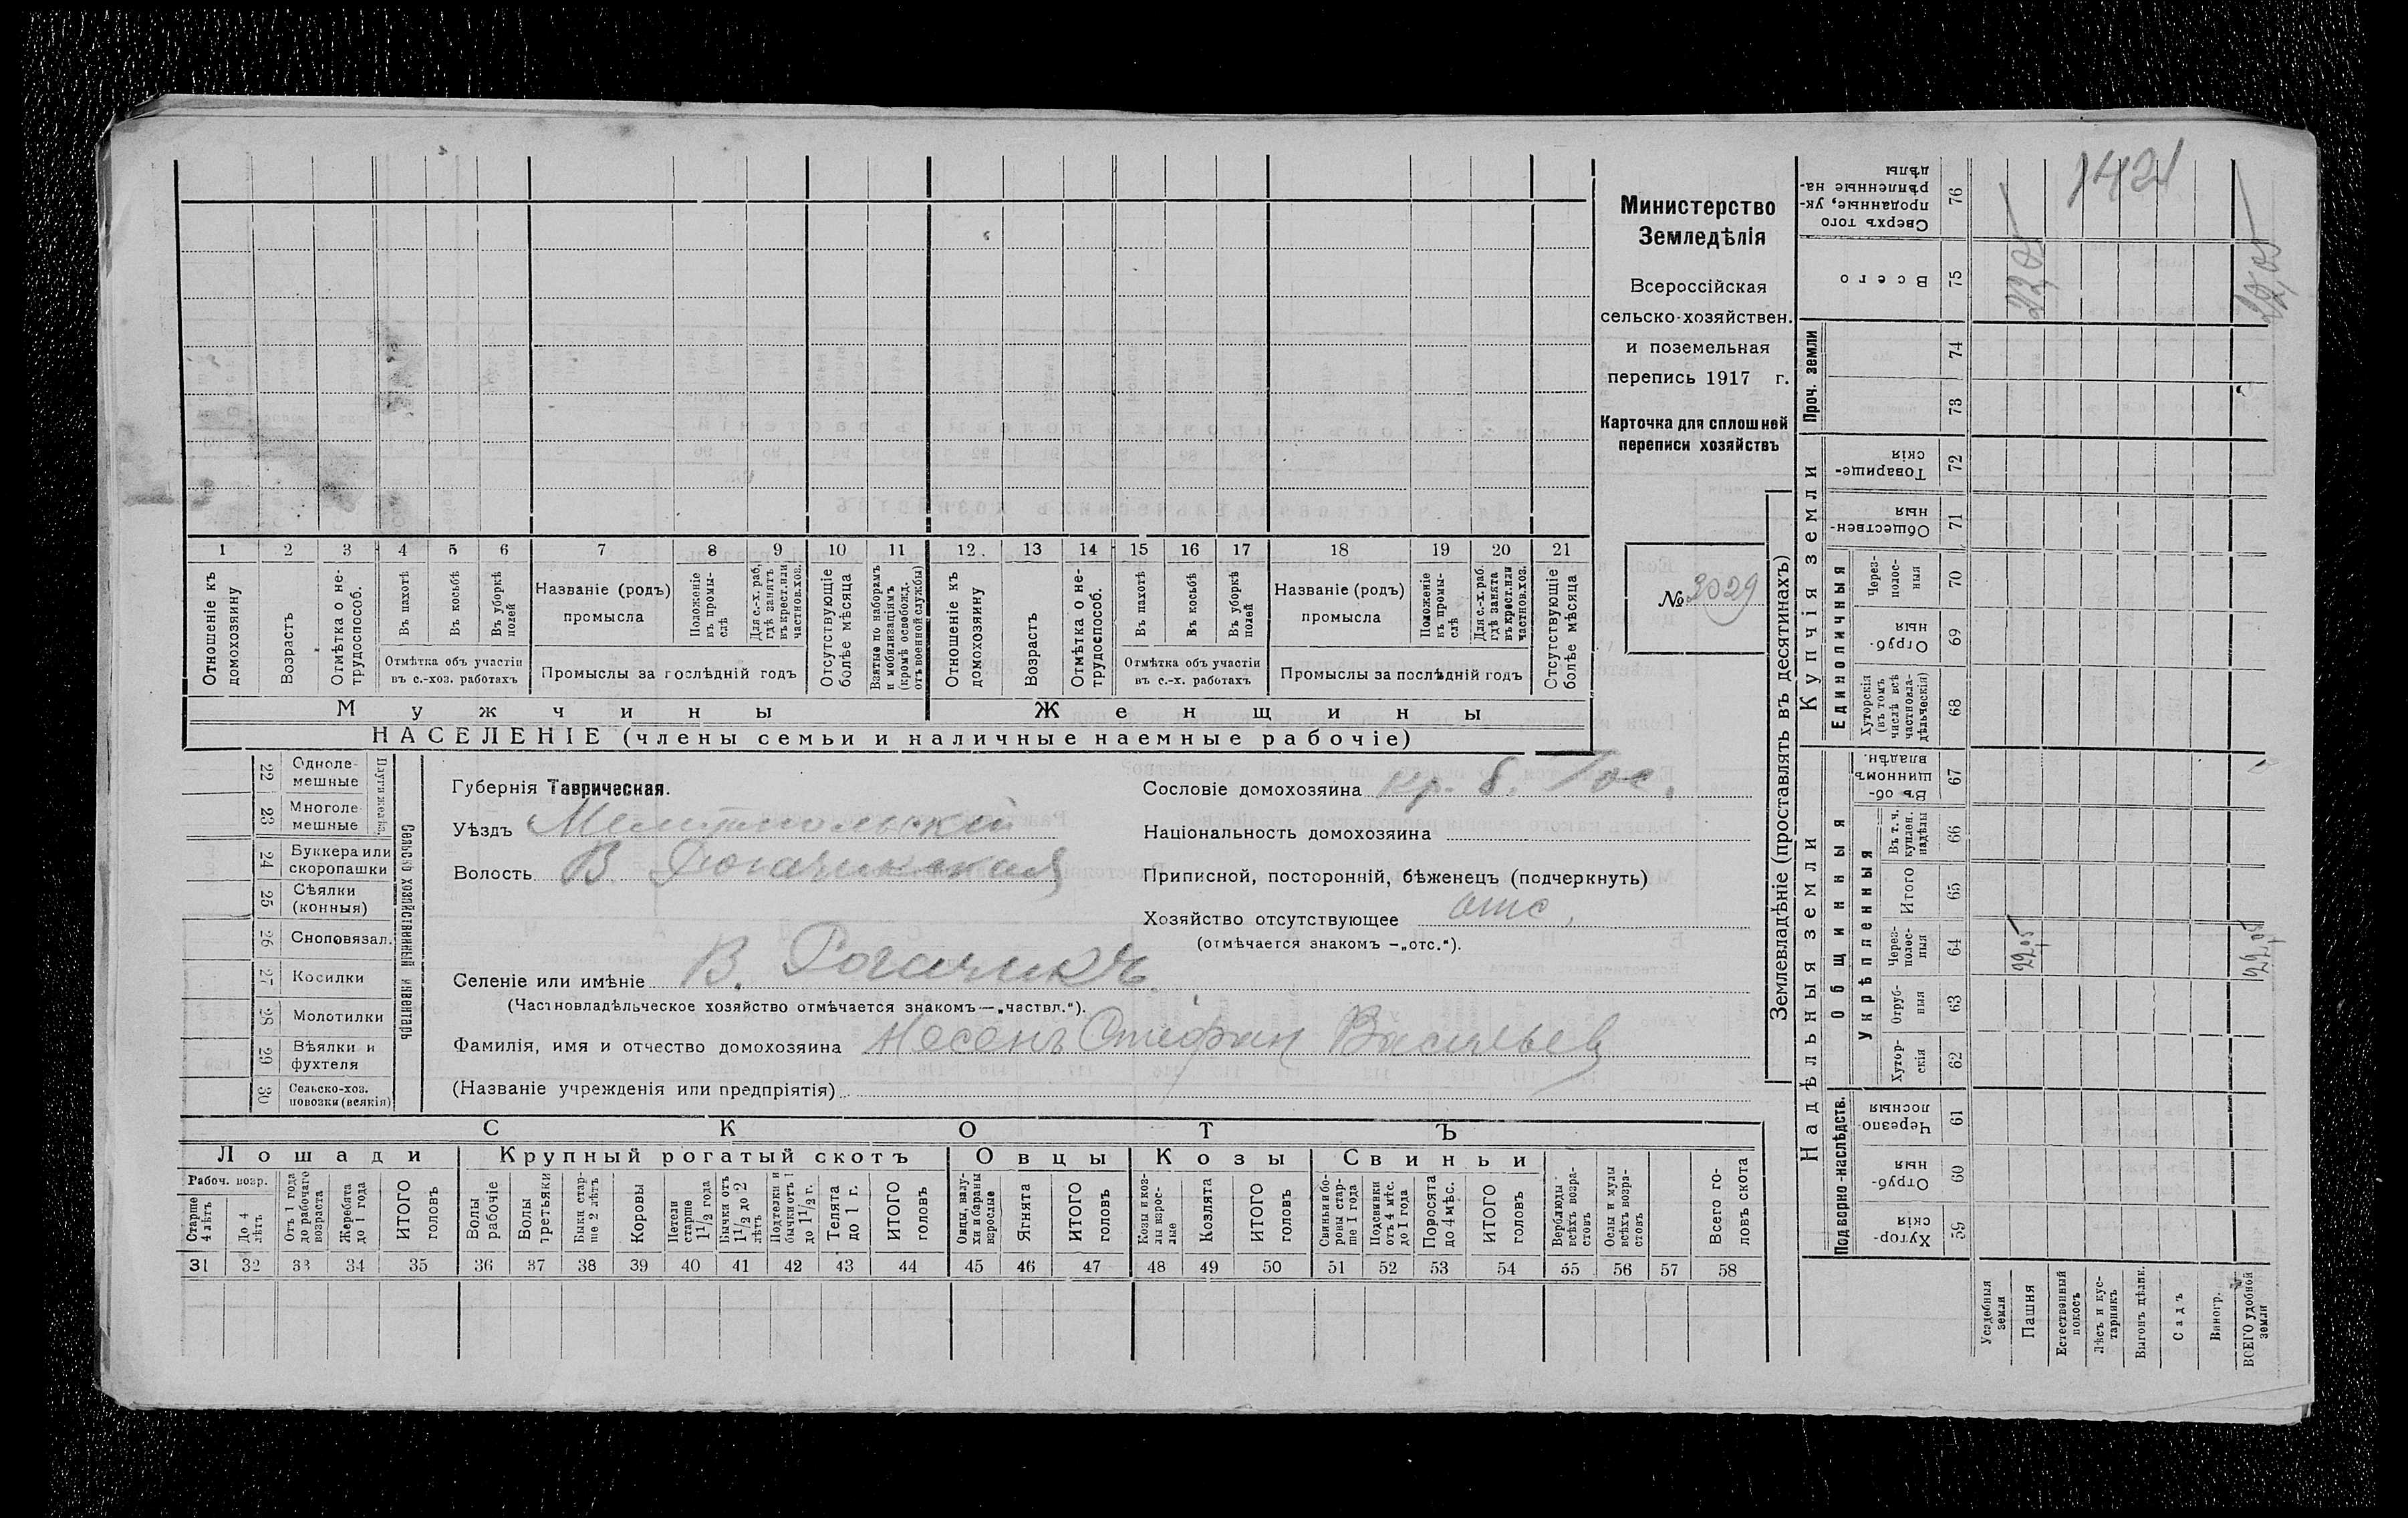 1 2 3 4 5 6 7 8 9 10 11 12 13 14 15 16 17 18 19 20 21
Отношеніе къ домохозяину
Возрастъ
Отмѣтка о не-
трудоспособ.
Въ пахотѣ
Въ косьбѣ
Въ уборкѣ
полей
Отмѣтка объ участіи
въ с.-хоз. работахъ
Названіе (родъ)
промысла
Положеніе
въ промы-
слѣ
Для с.-х. раб.
гдѣ занятъ
въ крест. или
частнов. хоз.
Промыслы за послѣдній годъ
Отсутствующіе
болѣе мѣсяца
Взятые по наборамъ
и мобилизаціямъ
(кромѣ освобожд.
отъ военной службы)
Отношеніе къ
домохозяину
Возрастъ
Отмѣтка о не-
трудоспособ.
Въ пахотѣ
Въ косьбѣ
Въ уборкѣ
полей
Отмѣтка объ участіи
въ с.-х. работахъ
Названіе (родъ)
промысла
Положеніе
въ промы-
слѣ
Для с.-х. раб.
гдѣ занята
въ крест. или
частнов. хоз.
Промыслы за послѣдній годъ
Отсутствующіе
болѣе мѣсяца
Мужчины
Женщины
НАСЕЛЕНІЕ (члены семьи и наличные наемные рабочіе)
Министерство
Земледѣлія
Всероссійская
сельско-хозяйствен.
и поземельная
перепись 1917 г.
Карточка для сплошней
переписи хозяйствъ
№ 3029
22 Одноле-
мешные
23 Многоле-
мешные
24 Буккера или
скоропашки
25 Сѣялки
(конныя)
26 Сноповязал.
27 Косилки
28 Молотилки
29 Вѣялки и
фухтеля
30 Сельско-хоз.
повозки (всякія)
Сельско хозяйственный инвентарь
Губернія Таврическая.
Уѣздъ Мелитопольскій
Волость В. Рогачикская
Сословіе домохозяина кр. б. Гос.
Національность домохозяина
Приписной, посторонній, бѣженецъ (подчеркнуть)
Хозяйство отсутствующее отс.
(отмѣчается знакомъ —„отс.“).
Селеніе или имѣніе В. Рогачикъ
(Частновладѣльческое хозяйство отмѣчается знакомъ—„частвл.“).
Фамилія, имя и отчество домохозяина Носенъ Стефан Васильев
(Названіе учрежденія или предпріятія)
СКОТЪ
Лошади
Крупный рогатый скотъ
Овцы
Козы
Свиньи
Рабоч. возр.
Старше
4 лѣтъ
До 4
лѣтъ
Отъ 1 года
до рабочаго
возраста
Жеребята
до 1 года
ИТОГО
головъ
Волы
рабочіе
Волы
третьяки
Быки стар-
ше 2 лѣтъ
Коровы
Нетели
старше
1 1/2 года
Бычки отъ
1 1/2 до 2
лѣтъ
Подтелки и
бычки отъ 1
до 1 1/2 г.
Телята
до 1 г.
ИТОГО
головъ
Овцы, валу-
хи и бараны
взрослые
Ягнята
ИТОГО
головъ
Козы и коз-
лы взрос-
лые
Козлята
ИТОГО
головъ
Свиньи и бо-
ровы стар-
ше 1 года
Подсвинки
отъ 4 мѣс.
до 1 года
Поросята
до 4 мѣс.
ИТОГО
головъ
Верблюды
всѣхъ возра-
стовъ
Ослы и мулы
всѣхъ возра-
стовъ
Всего го-
ловъ скота
31 32 33 34 35 36 37 38 39 40 41 42 43 44 45 46 47 48 49 50 51 52 53 54 55 56 57 58
Землевладѣніе (проставлять въ десятинахъ)
Надѣльныя земли
Купчія земли
Проч. земли
Подворно-наслѣдств.
Общинныя
Укрѣпленныя
Единоличныя
Сверхъ того
проданные, ук-
рѣпленные на-
дѣлы
76
Всего
75
74
73
Товарище-
скія
72
Обществен-
ныя
71
Через-
полос-
ныя
70
Отруб-
ныя
69
Хуторскія
(въ томъ
числѣ всѣ
частновла-
дѣльческія)
68
Въ об-
щинномъ
владѣн.
67
Въ т. ч.
куплен.
надѣлы
66
Итого
65
Через-
полос-
ныя
64
Отруб-
ныя
63
Хутор-
скія
62
Черезпо-
лосныя
61
Отруб-
ныя
60
Хутор-
скія
59
Усадебныя
земли
Пашня
Естественный
покосъ
Лѣсъ и кус-
тарникъ
Выгонъ цѣлин.
Садъ
Виногр.
ВСЕГО удобной
земли
1421
22,05
22,05
22,05
22,05